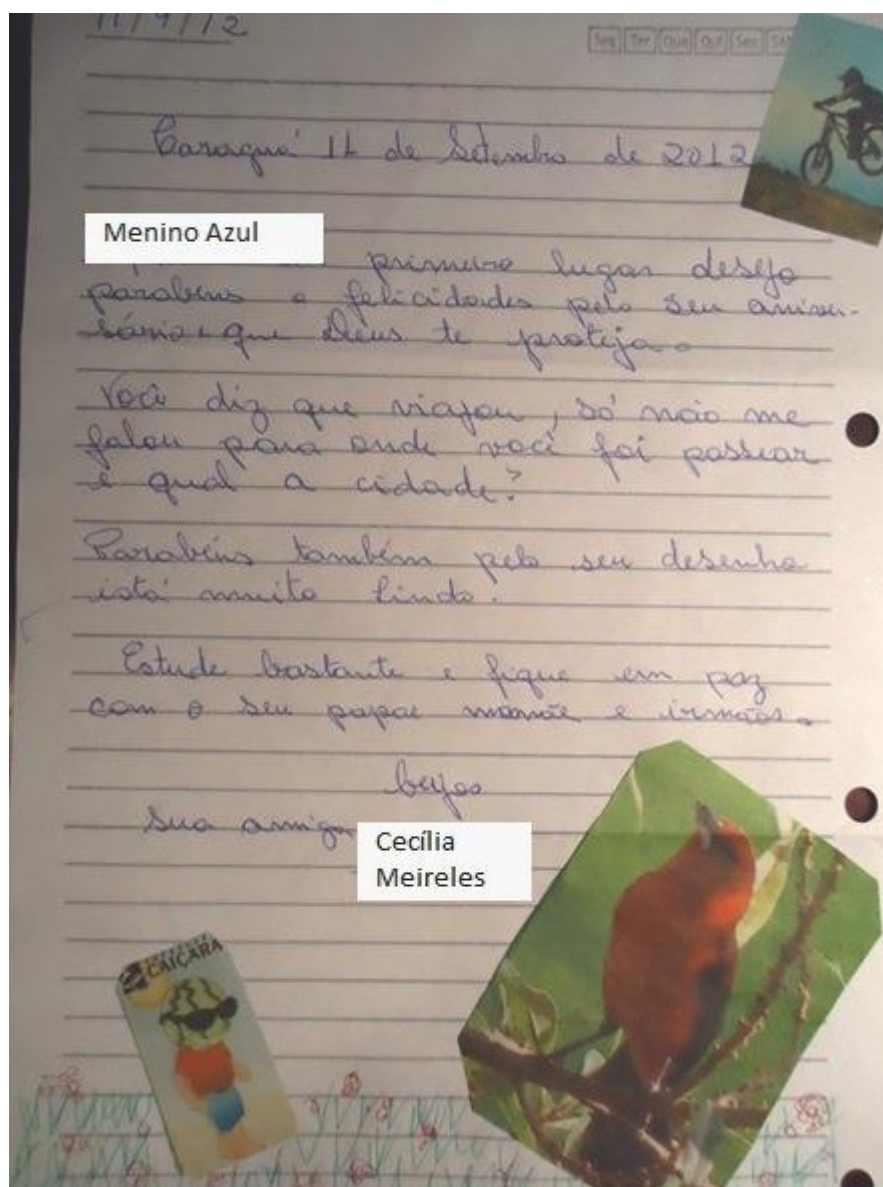 11/9/12
Seg Ter Qua Qui Sex
Caraguá 11 de Setembro de 2012
Menino Azul
primeiro lugar desejo
parabens e felicidades pelo seu aniver-
sário e que Deus te proteja.
Você diz que viajou, só não me
falou para onde você foi passear
e qual a cidade?
Parabéns também pelo seu desenho
está muito lindo.
Estude bastante e fique em paz
com o seu papae mamãe e irmãos.
beijos
sua amiga
Cecília
Meireles
CAIÇARA